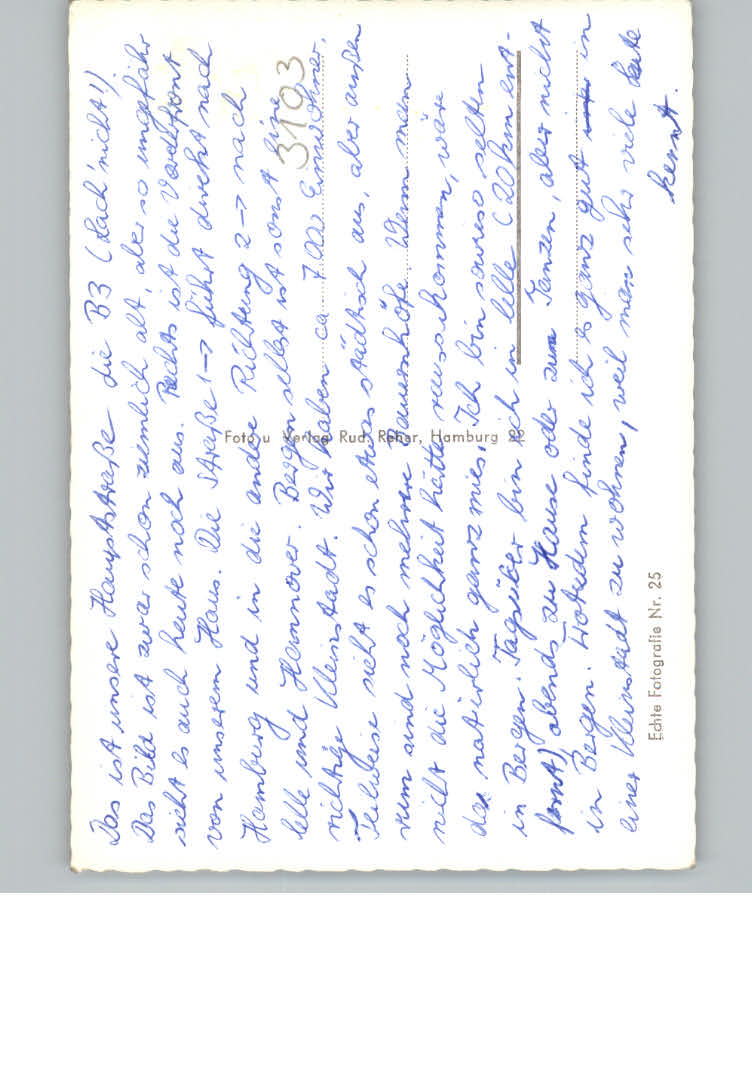 Das ist unsere Hauptstraße die B3 (Lach nicht!)
Das Bild ist zwar schon ziemlich alt, aber so ungefähr
sieht es auch heute noch aus. Rechts ist die Vorderfront
von unserem Haus. Die Straße 1→ führt direkt nach
Hamburg und in die andere Richtung 2→ nach
Celle und Hannover. Bergen selbst ist sonst eine
richtige Kleinstadt. Wir haben ca. 7.000 Einwohner.
Teilweise sieht es schon etwas städtisch aus, aber außen
rum sind noch mehrere Bauernhöfe. Wenn man
nicht die Möglichkeit hätte rauszukommen, wäre
das natürlich ganz mies. Ich bin sowieso selten
in Bergen. Tagsüber bin ich in Celle (20km ent-
fernt) abends zu Hause oder zum Tanzen, aber nicht
in Bergen. Trotzdem finde ich es ganz gut in
einer Kleinstadt zu wohnen, weil man sehr viele Leute
kennt.
3103
Foto u. Verlag Rud. Reher, Hamburg 22
Echte Fotografie Nr. 25